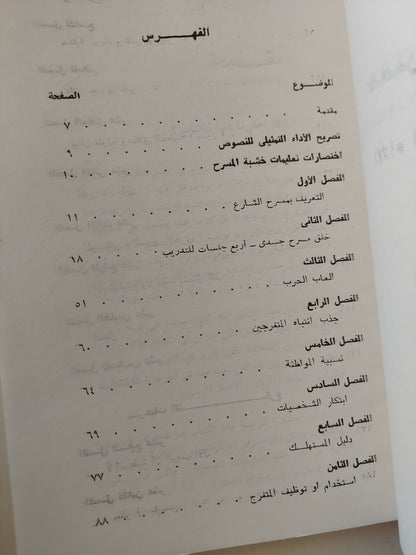 الفهـــرس
الموضوع
الصفحة
مقدمة ٧
تصريح الأداء التمثيلى للنصوص ٩
اختصارات تعليمات خشبة المسرح ١٠
الفصل الأول
التعريف بمسرح الشارع ١١
الفصل الثانى
خلق مسرح جسدى ـ أربع جلسات للتدريب ٦٨
الفصل الثالث
العاب الحرب ٥١
الفصل الرابع
جذب انتباه المتفرجين ٦٠
الفصل الخامس
نسبية المواطنة ٦٤
الفصل السادس
ابتكار الشخصيات ٦٩
الفصل السابع
دليل المستهلك ٧٧
الفصل الثامن
استخدام او توظيف المتفرج ٨٨